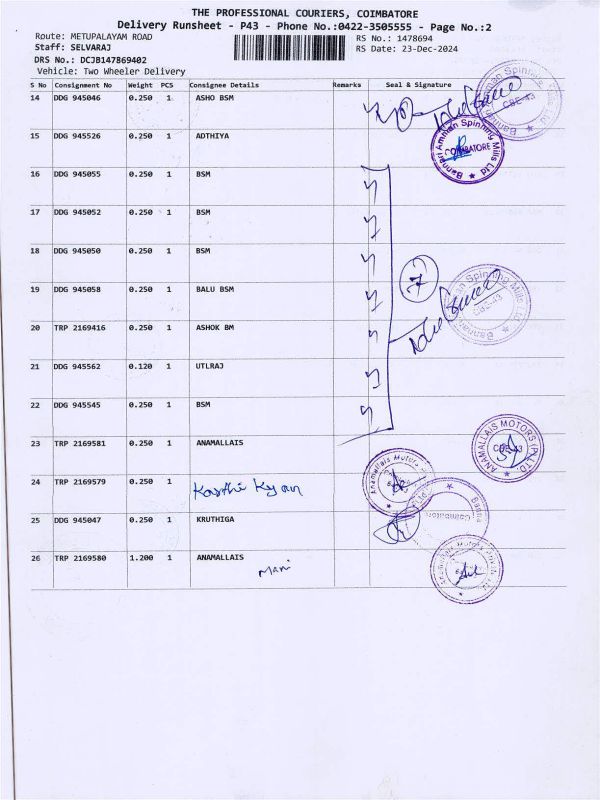 THE PROFESSIONAL COURIERS, COIMBATORE
Delivery Runsheet - P43 - Phone No.:0422-3505555 - Page No.:2
Route: METUPALAYAM ROAD RS No.: 1478694
Staff: SELVARAJ RS Date: 23-Dec-2024
DRS No.: DCJB147869402
Vehicle: Two Wheeler Delivery
S No Consignment No Weight PCS Consignee Details Remarks Seal & Signature
14 DDG 945046 0.250 1 ASHO BSM
15 DDG 945526 0.250 1 ADTHIYA
Bannari Amman Spinning Mills Ltd
COIMBATORE
16 DDG 945055 0.250 1 BSM
17 DDG 945052 0.250 1 BSM
18 DDG 945050 0.250 1 BSM
7
19 DDG 945058 0.250 1 BALU BSM
CBE-43
20 TRP 2169416 0.250 1 ASHOK BM
21 DDG 945562 0.120 1 UTLRAJ
22 DDG 945545 0.250 1 BSM
23 TRP 2169581 0.250 1 ANAMALLAIS
ANAMALLAIS MOTORS (P) LTD.
24 TRP 2169579 0.250 1 Karthi Kyan
Anamallais Motors
25 DDG 945047 0.250 1 KRUTHIGA
26 TRP 2169580 1.200 1 ANAMALLAIS
Mani